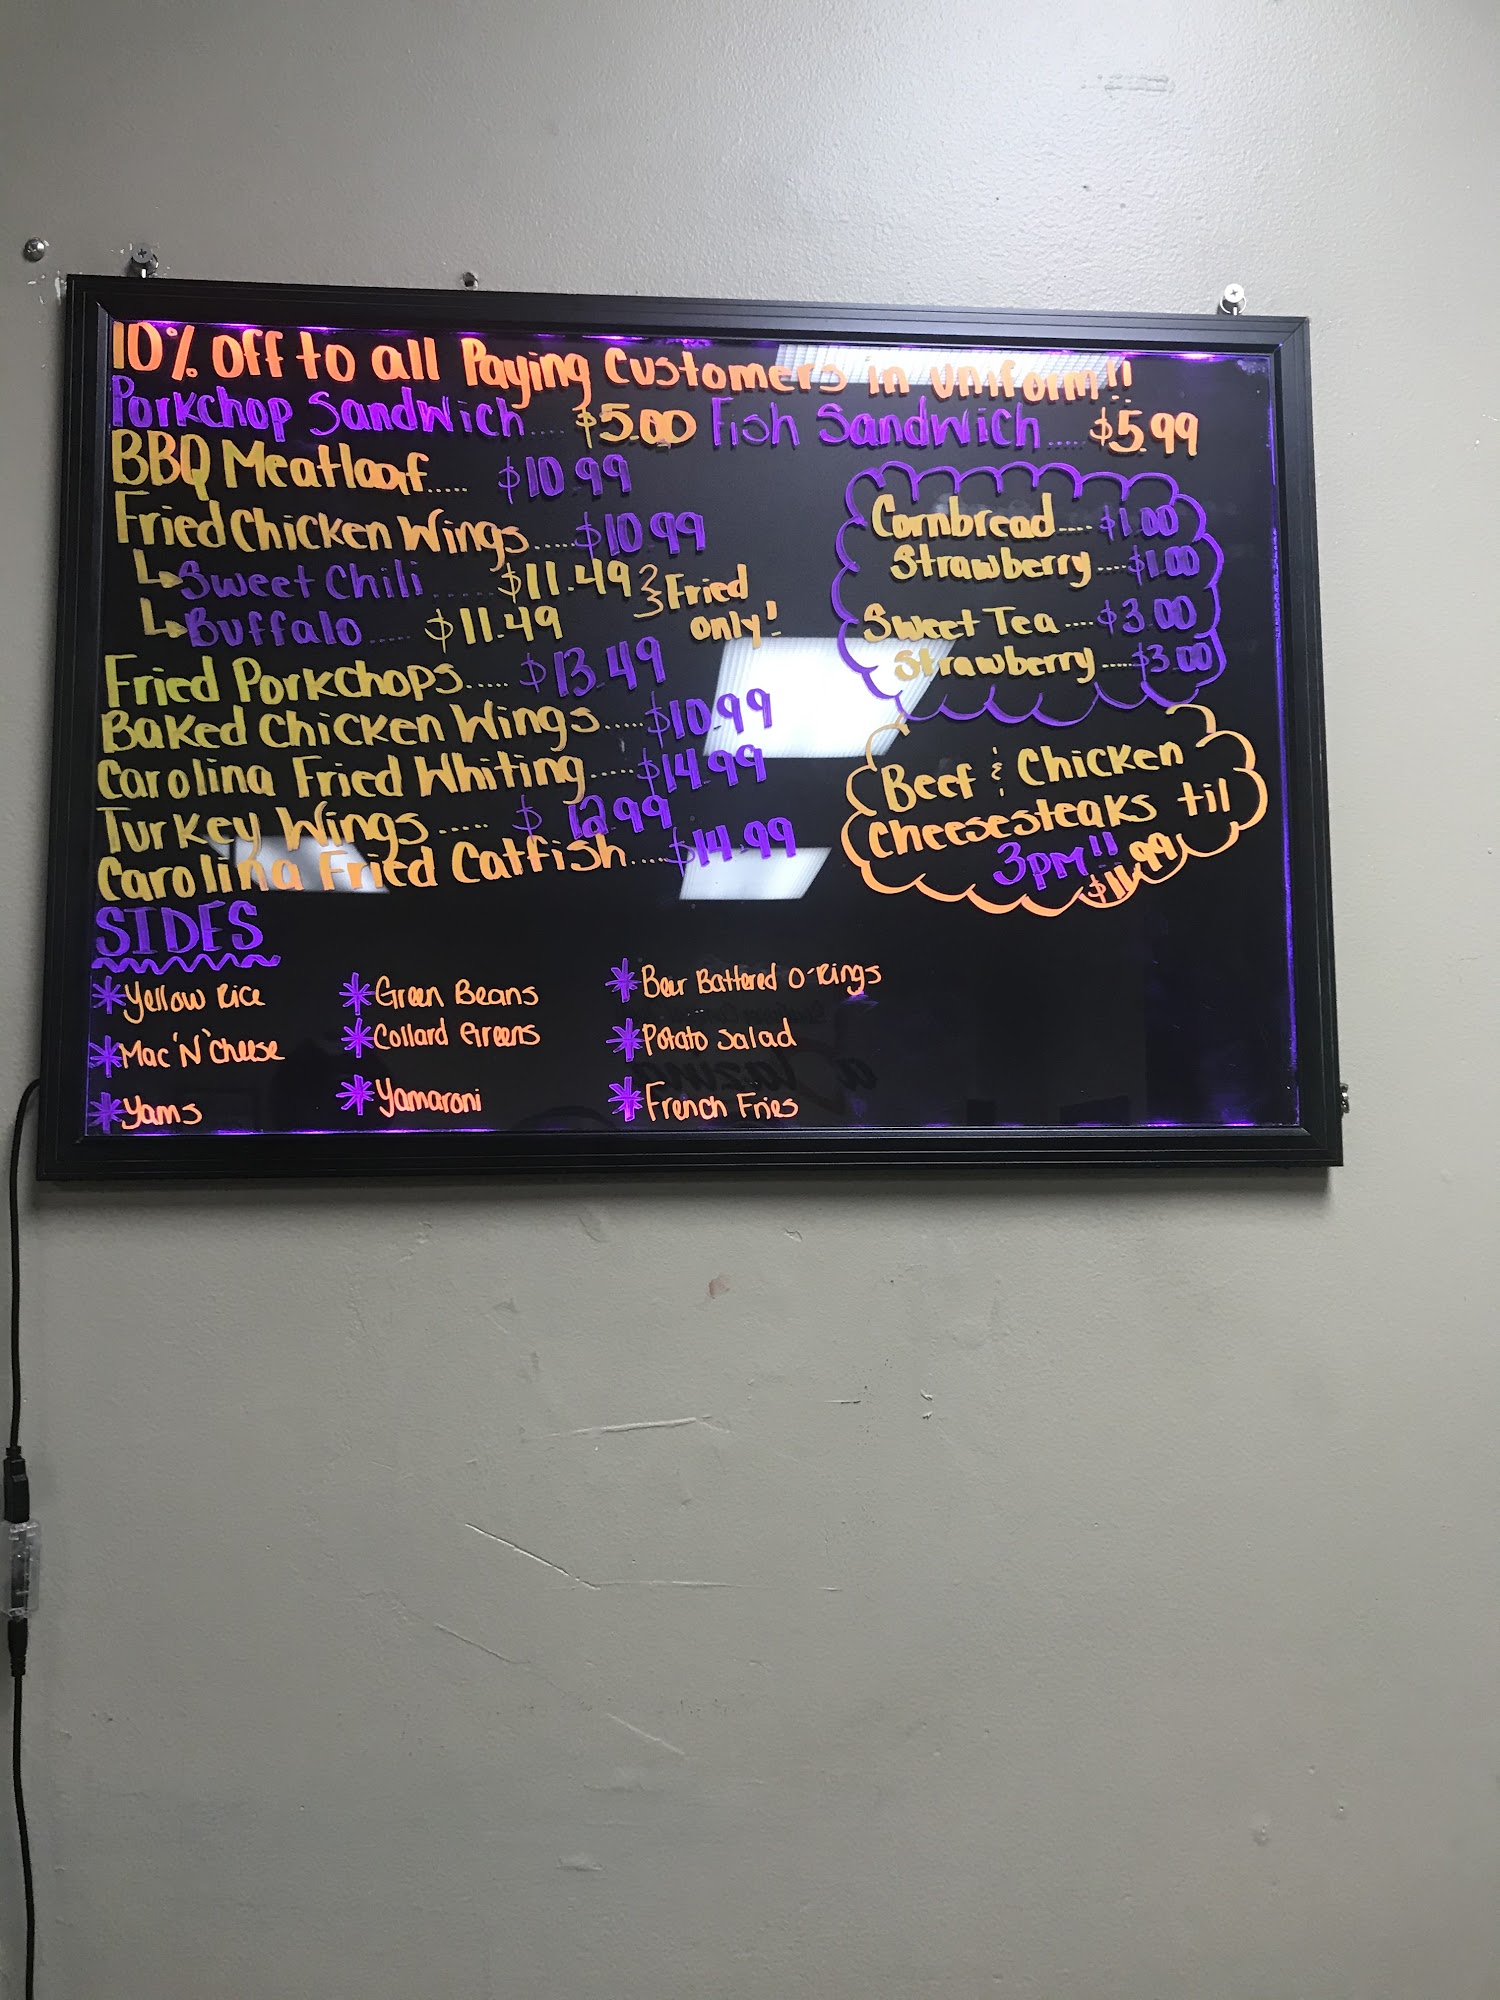 10% off to all Paying Customers in uniform!!
Porkchop Sandwich.... $5.00 Fish Sandwich..... $5.99
BBQ Meatloaf..... $10.99
Fried Chicken Wings..... $10.99
Sweet Chili ..... $11.49
Buffalo..... $11.49
Fried
only!
Fried Porkchops..... $13.49
Baked Chicken Wings..... $10.99
Carolina Fried Whiting..... $14.99
Turkey Wings ..... $12.99
Carolina Fried Catfish.... $14.99
Cornbread.... $1.00
Strawberry.... $1.00
Sweet Tea.... $3.00
Strawberry.... $3.00
Beef & Chicken
Cheesesteaks til
3pm!!
$11.99
SIDES
*Yellow Rice
*Mac 'N' Cheese
*Yams
*Green Beans
*Collard Greens
*Yamaroni
*Beer Battered O-Rings
*Potato Salad
*French Fries